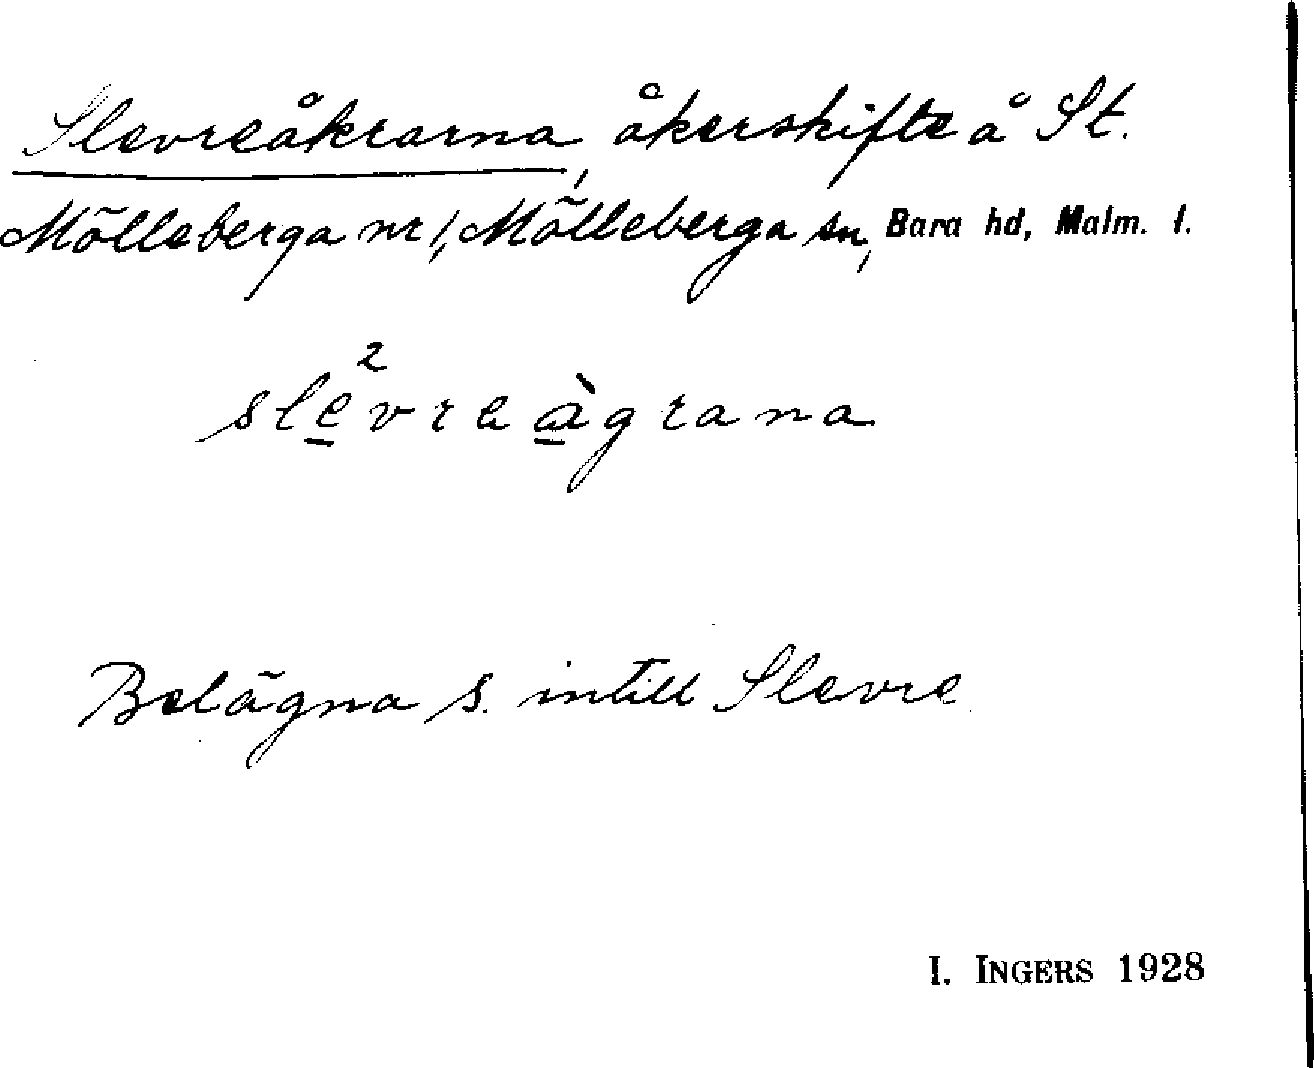 Slevreåkrarna, åkerskifte å St.
Mölleberga nr 1, Mölleberga sn, Bara hd, Malm. l.
sle̱²vreà̱grana
Belägna S. intill Slevre
I. INGERS 1928